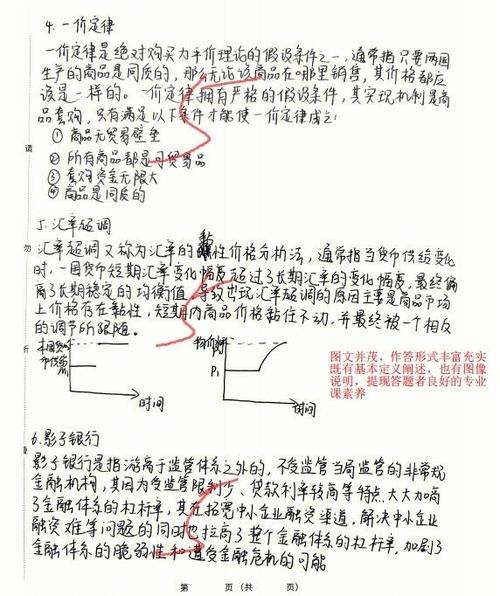 4. 一价定律
一价定律是绝对购买力平价理论的假设条件之一，通常指只要两国
生产的商品是同质的，那么无论该商品在哪里销售，其价格都应
该是一样的。一价定律拥有严格的假设条件，其实现机制是商
品套购，只有满足以下条件才能使一价定律成立：
① 商品无贸易壁垒
② 所有商品都是可贸易品
③ 套购资金无限大
④ 商品是同质的
请
5. 汇率超调
勿
汇率超调又称为汇率的黏性价格分析法，通常指当货币供给变化
时，一国货币短期汇率变化幅度超过了长期汇率的变化幅度，最终偏
离了长期稳定的均衡值，导致出现汇率超调的原因主要是商品市场
上价格存在黏性，短期内商品价格黏住不动，并最终被一个相反
的调节所跟随。
本国货
币供给
M₁
时间
物价
P₁
时间
图文并茂，作答形式丰富充实
既有基本定义阐述，也有图像
说明，提现答题者良好的专业
课素养
6. 影子银行
影子银行是指游离于监管体系之外的，不受监管当局监管的非常规
金融机构，其因为受监管限制少、贷款利率较高等特点，大大加高
了金融体系的杠杆率，其在拓宽中小企业融资渠道，解决中小企业
融资难等问题的同时也拉高了整个金融体系的杠杆率，加剧了
金融体系的脆弱性和遭受金融危机的可能
第 页（共 页）